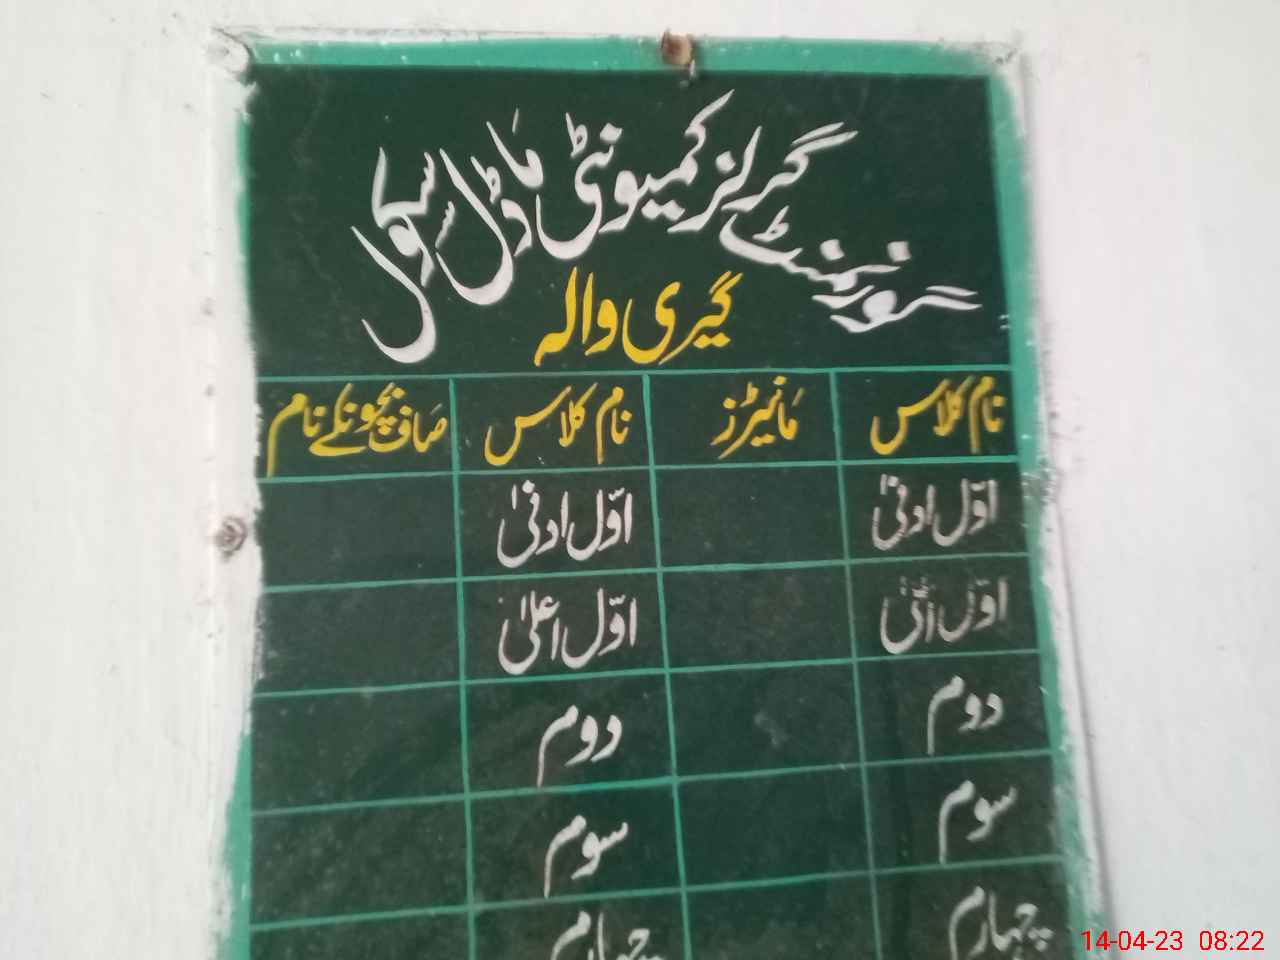 گورنمنٹ گرلز کمیونٹی ماڈل سکول
گیری والہ
نام کلاس مانیٹرز نام کلاس صاف بچونکے نام
اوّل ادنیٰ اوّل ادنیٰ
اوّل اعلیٰ اوّل اعلیٰ
دوم دوم
سوم سوم
چہارم چہارم
14-04-23 08:22